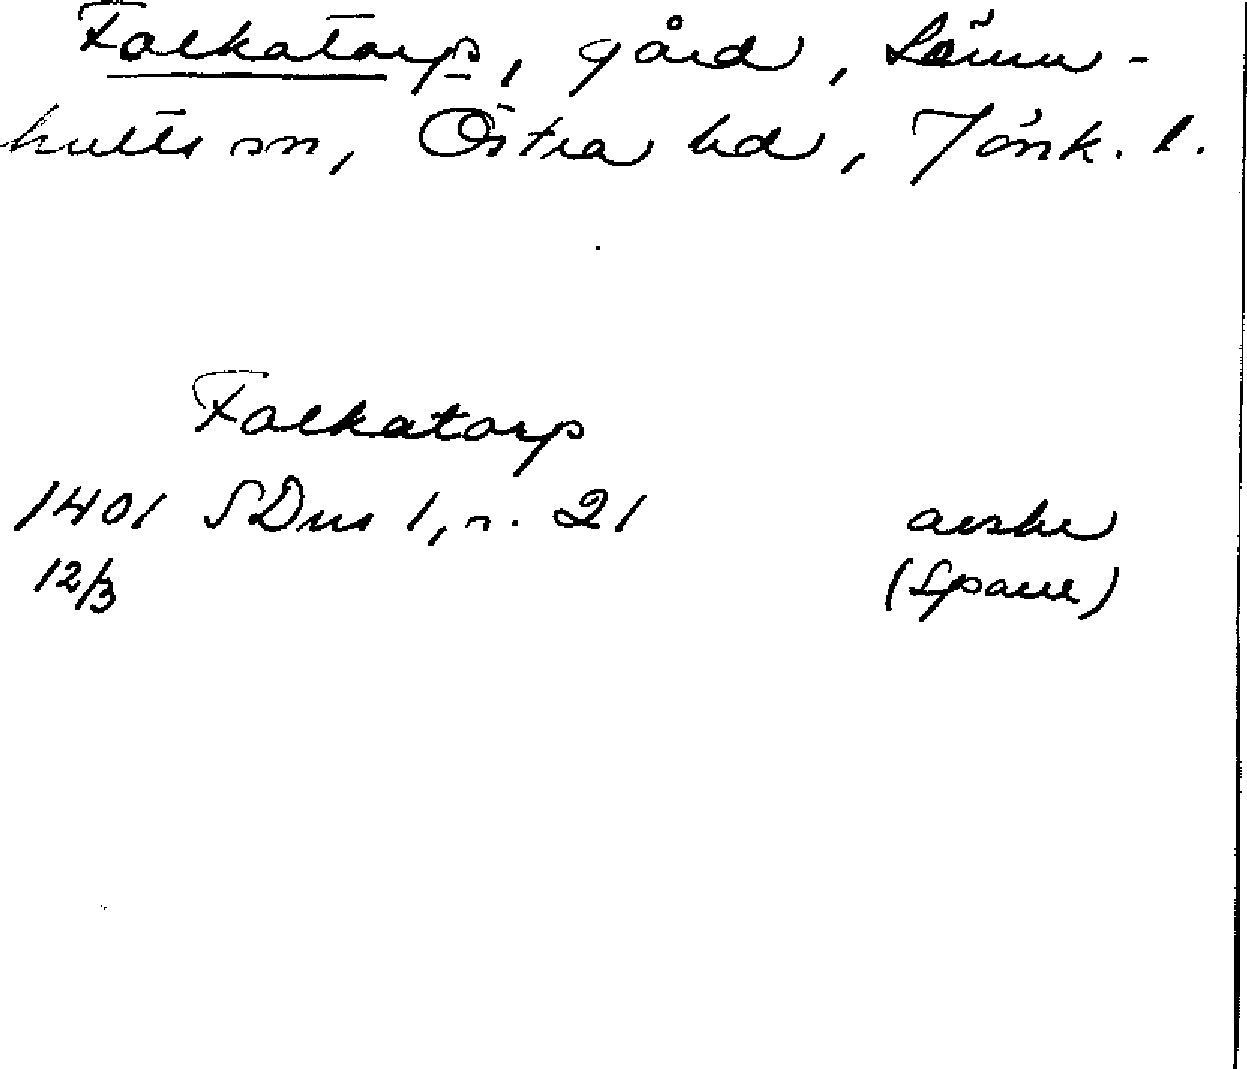 Folkatorp, gård, Lömm-
hults sn, Östra hd, Jönk. l.
Folkatorp
1401 SDns 1, n. 21 avskr
12/3 (Spaur)